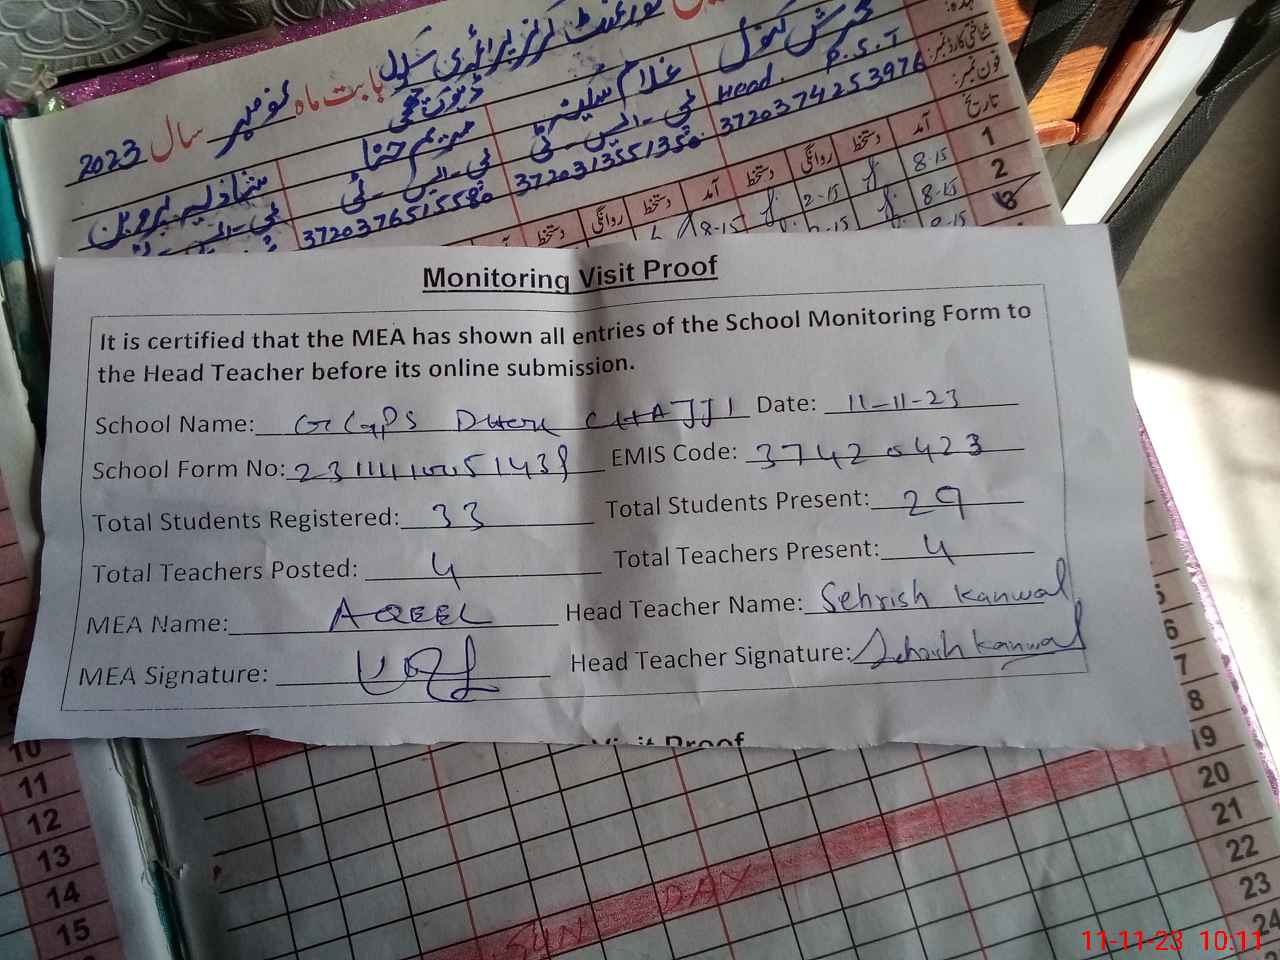 سال 2023 بابت ماہ نومبر
شناختی کارڈ نمبر:
فون نمبر:
تاریخ
غلام سکینہ
مریم حنا
Head P.S.T
پی۔ایس۔ٹی
پی۔ایس۔ٹی
3720374253976
3720313551350
3720376515580
آمد دستخط روانگی دستخط آمد دستخط روانگی دستخط
1 8-15 2-15 8-15
2 8-15
Monitoring Visit Proof
It is certified that the MEA has shown all entries of the School Monitoring Form to
the Head Teacher before its online submission.
School Name: GGPS DHOK CHAJJI Date: 11-11-23
School Form No: EMIS Code: 37420423
Total Students Registered: 33 Total Students Present: 29
Total Teachers Posted: 4 Total Teachers Present: 4
MEA Name: AQEEL Head Teacher Name: Sehrish Kanwal
MEA Signature: Head Teacher Signature: Sehrish Kanwal
Visit Proof
6
7
8
19
20
21
22
23
24
10
11
12
13
14
15
SUNDAY
11-11-23 10:11